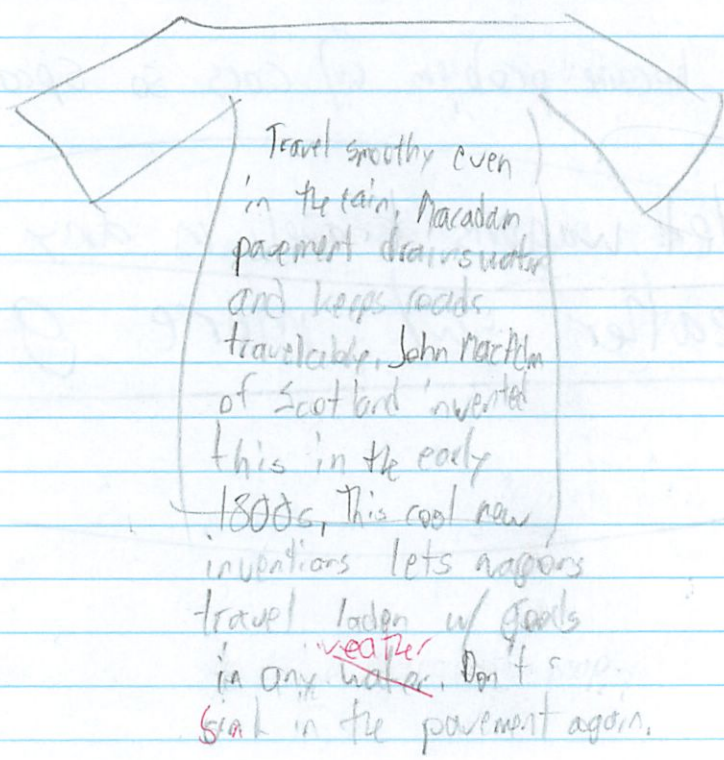 Travel smoothy even
in the rain. Macadam
pavement drains water
and keeps roads
travelable. John MacAdm
of Scotland invented
this in the early
1800s, This cool new
inventions lets wagons
travel laden w/ goods
weather
in any water. Don't
sink in the pavement again.